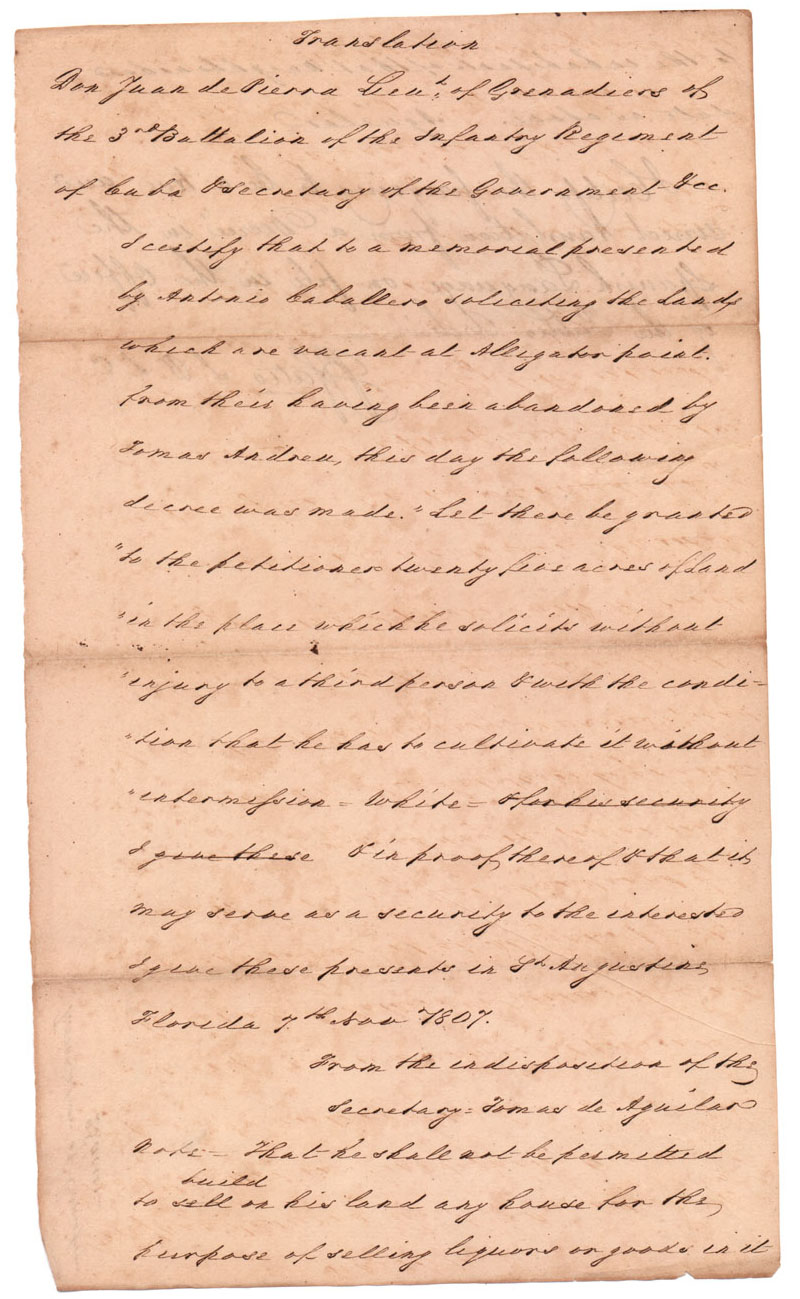 Translation
Don Juan de Pierra Lieut. of Grenadiers of
the 3rd Battalion of the Infantry Regiment
of Cuba & secretary of the Government &cc.
I certify that to a memorial presented
by Antonio Caballero soliciting the Lands
which are vacant at Alligator point.
from their having been abandoned by
Tomas Andreu, this day the following
decree was made. "Let there be granted
"to the petitioner twenty five acres of Land
"in the place which he solicits without
"injury to a third person & with the condi=
"tion that he has to cultivate it without
"intermission = White = & for his security
I give these & in proof thereof & that it
may serve as a security to the interested
I give these presents in St Augustine
Florida 7th Nov 1807.
From the indisposition of the
Secretary = Tomas de Aguilar
Note = That he shall not be permitted
build
to sell on his land any house for the
purpose of selling liquors or goods in it